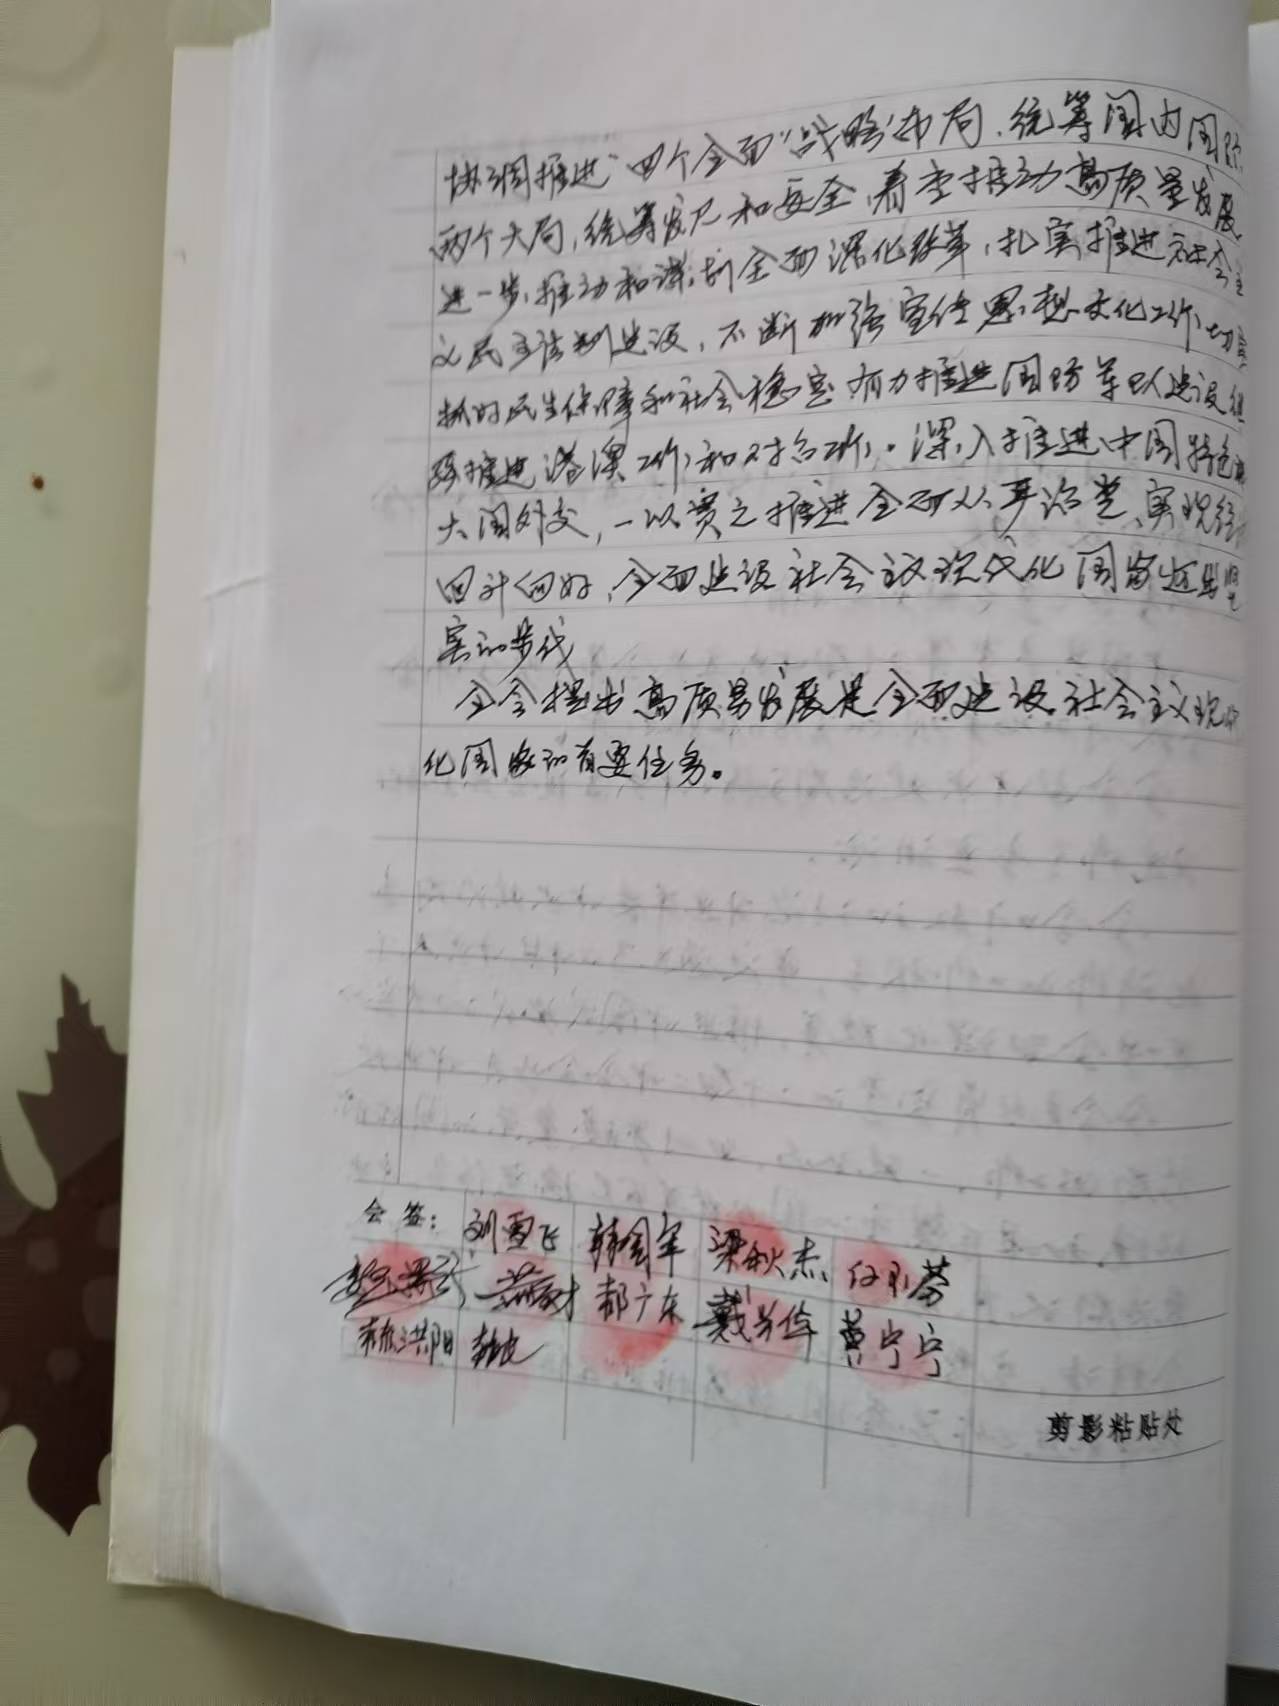 协调推进"四个全面"战略布局、统筹国内国际
两个大局,统筹发展和安全,着力推动高质量发展,
进一步推动和谋划全面深化改革,扎实推进社会主
义民主法制建设,不断加强宣传思想文化工作,切实
抓好民生保障和社会稳定,有力推进国防军队建设,继
续推进港澳工作和对台工作。深入推进中国特色
大国外交,一以贯之推进全面从严治党,实现经
回升向好,全面建设社会主义现代化国家迈出坚
实的步伐
全会提出高质量发展是全面建设社会主义现代
化国家的首要任务。
会签: 刘雪飞 韩国军 梁秋杰
郝广东 戴 曹宁宁
洪阳
剪影粘贴处